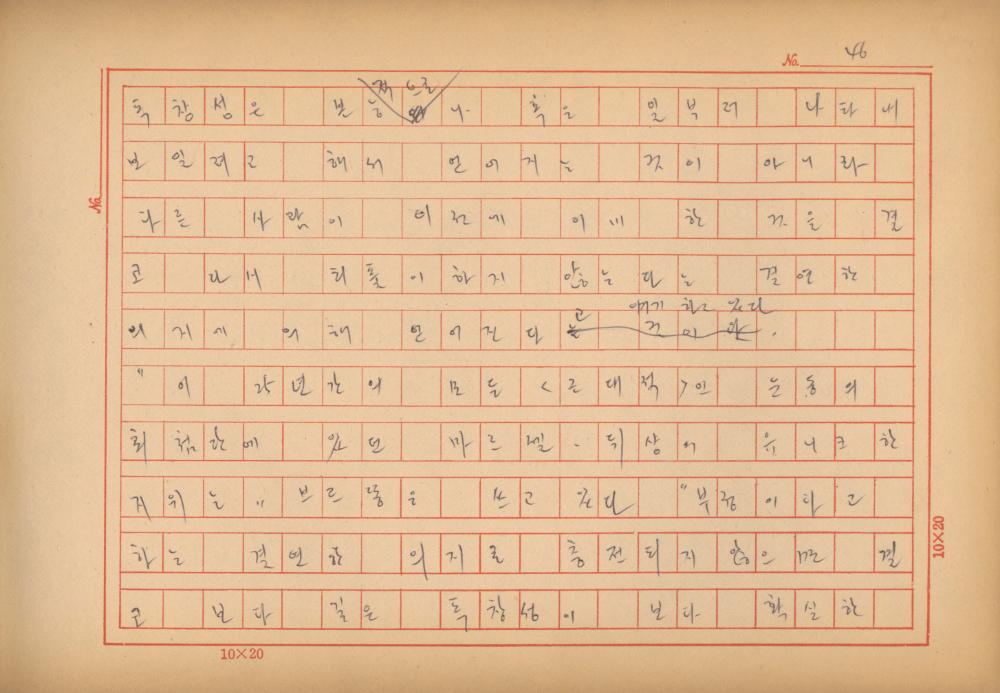 No. 46
적으로
독창성은 본능이나 혹은 일부러 나타내
보일려고 해서 얻어지는 것이 아니라
다른 사람이 이전에 이미 한 것을 결
코 다시 되풀이하지 않는다는 결연한
고 얘기하고 있다
의지에 의해 얻어진다는 것이다.
"이 25년간의 모든 <근대적>인 운동의
최첨단에 있던 마르셀·뒤샹의 유니크한
지위는" 브르통은 쓰고 있다 "부정이라고
하는 결연한 의지로 충전되지 않으면 결
코 보다 깊은 독창성이 보다 확실한
No.
10×20
10×20